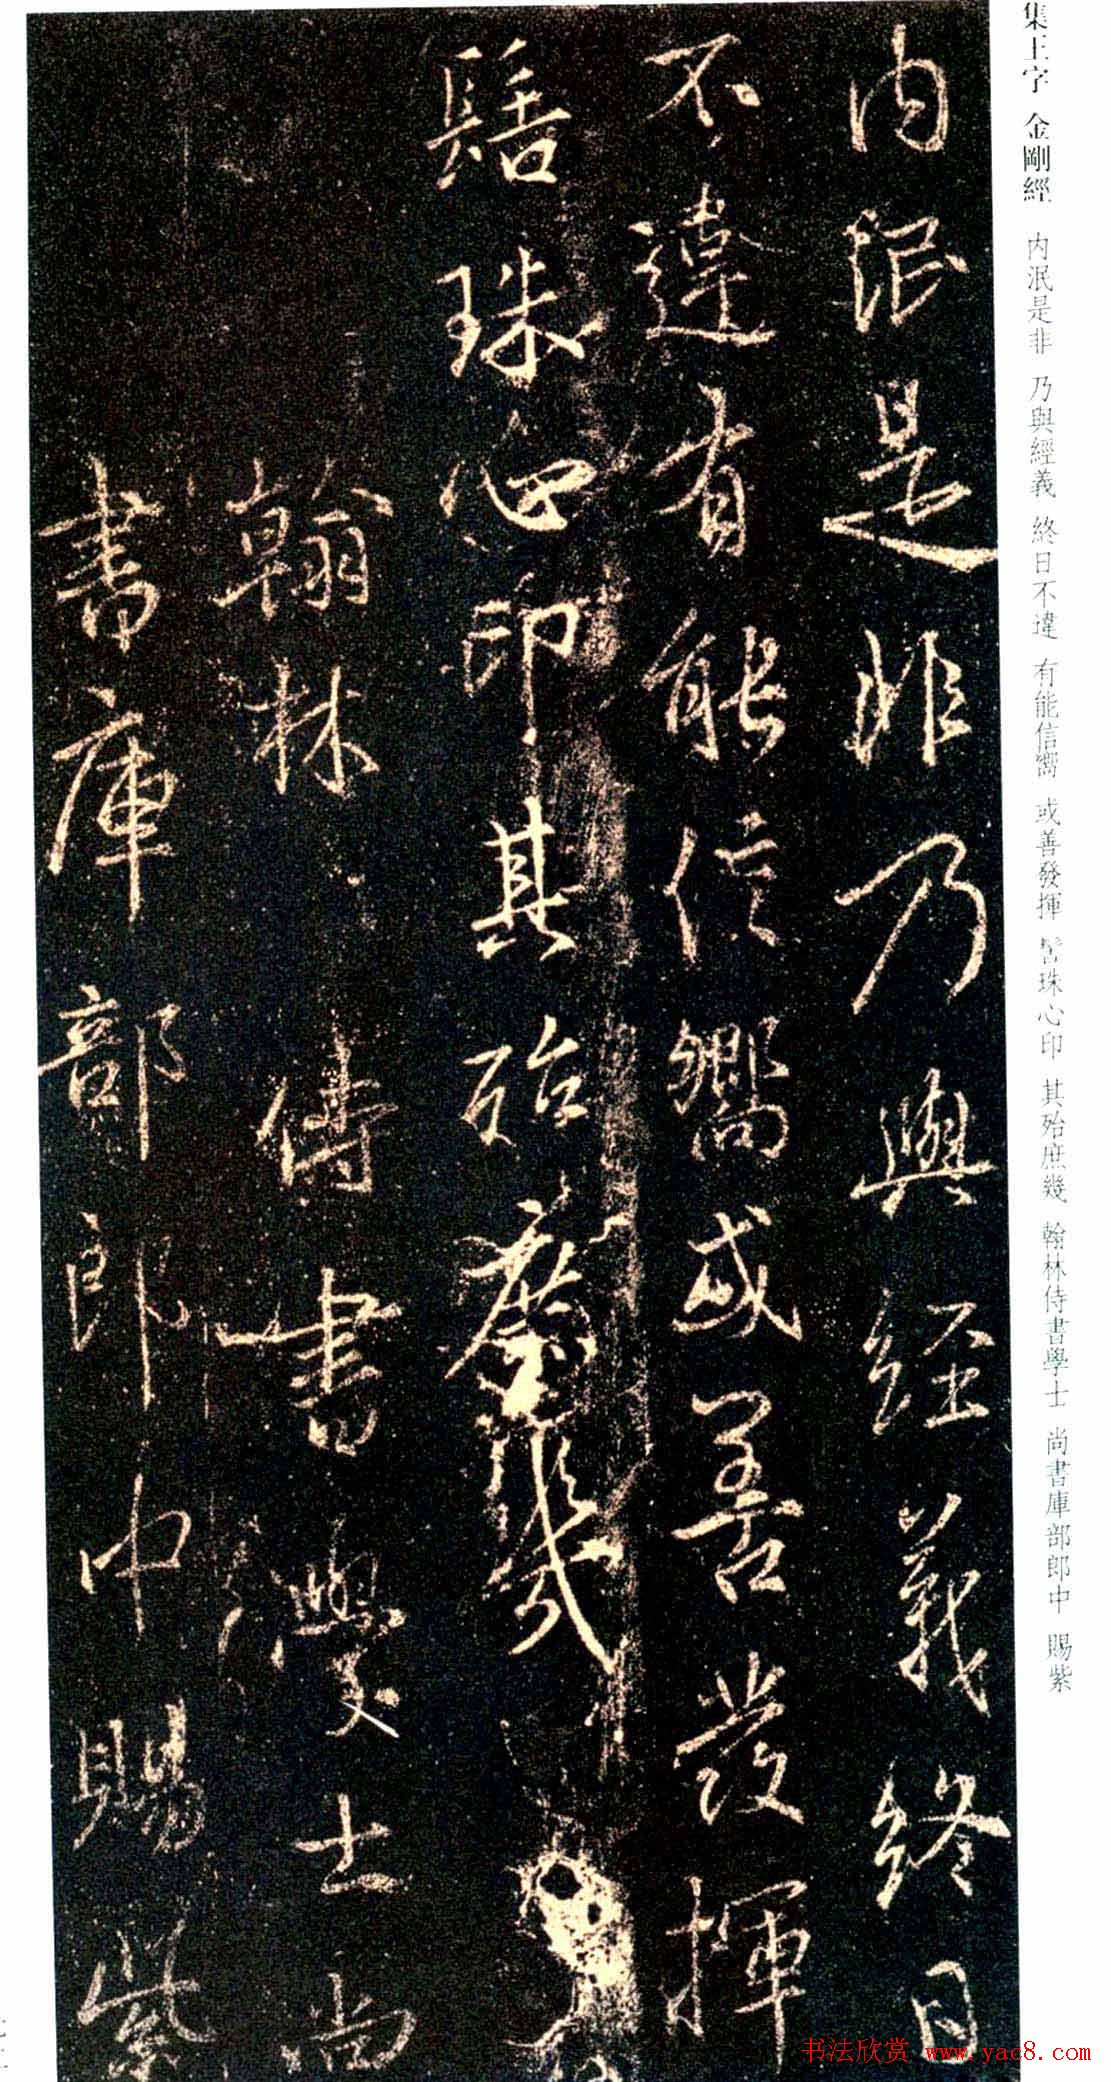 集王字 金剛經 内泯是非 乃與經義 終日不違 有能信嚮 或善發揮 髻珠心印 其殆庶幾 翰林侍書學士 尚書庫部郎中 賜紫
内泯是非乃與經義終日
不違有能信嚮或善發揮
髻珠心印其殆庶幾
翰林侍書學士尚
書庫部郎中賜紫
书法欣赏 www.yac8.com